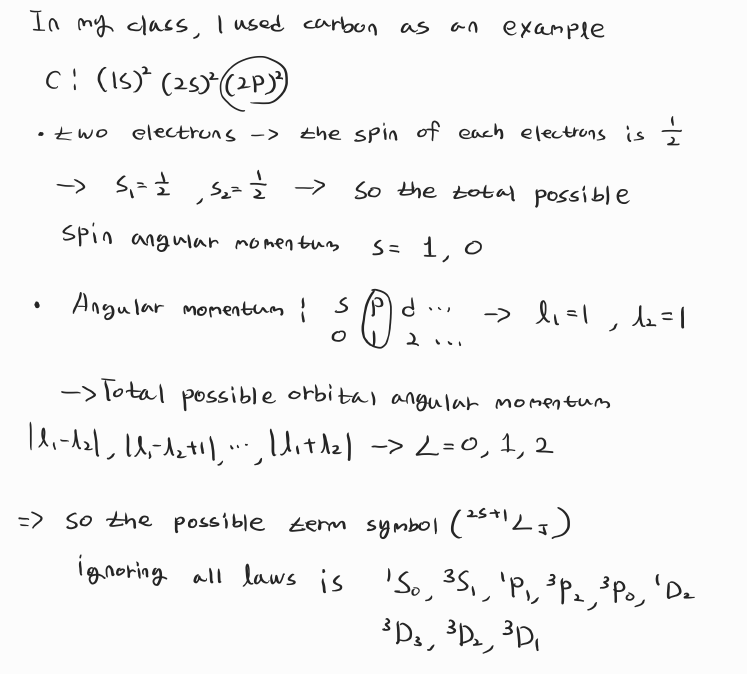 In my class, I used carbon as an example
C: (1S)² (2S)² (2P)²
• two electrons -> the spin of each electrons is 1/2
-> S₁=1/2, S₂=1/2 -> so the total possible
spin angular momentum S= 1, 0
• Angular momentum: S P d ... -> l₁=1, l₂=1
0 1 2 ...
-> Total possible orbital angular momentum
|l₁-l₂|, |l₁-l₂+1|, ..., |l₁+l₂| -> L=0, 1, 2
=> so the possible term symbol (²ˢ⁺¹L_J)
ignoring all laws is ¹S₀, ³S₁, ¹P₁, ³P₂, ³P₀, ¹D₂
³D₃, ³D₂, ³D₁